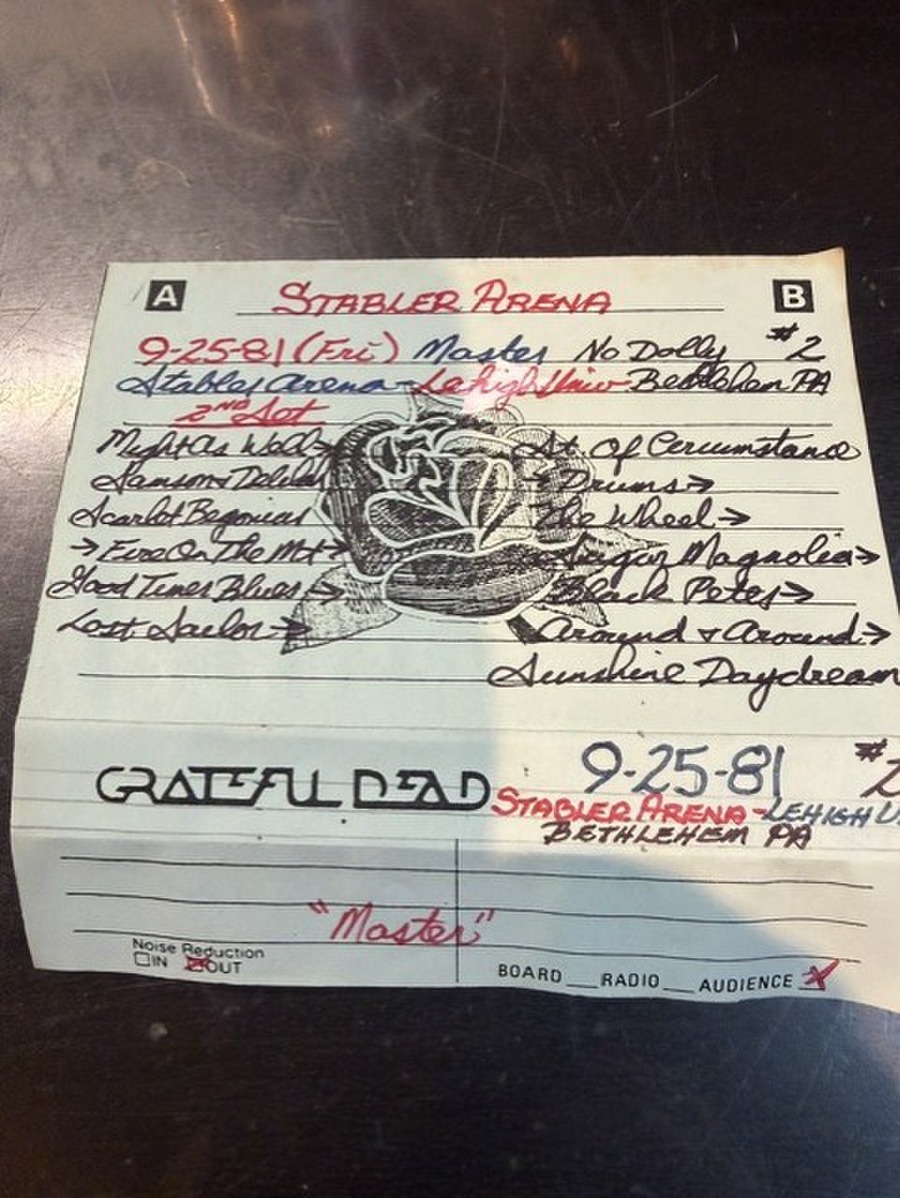 A STABLER ARENA B
9-25-81 (Fri) Master No Dolly #2
Stabler Arena - Lehigh Univ Bethlehem PA
2ND Set
Might As Well→
Samson + Delilah
Scarlet Begonias
→Fire On The Mt→
Good Times Blues→
Lost Sailor→
St. Of Cercumstance
→Drums→
The Wheel→
Sugar Magnolia→
Black Peter→
Around + Around→
Sunshine Daydream
GRATEFUL DEAD
9-25-81 #2
STABLER ARENA - LEHIGH U.
BETHLEHEM PA
"Master"
Noise Reduction
IN OUT
BOARD __ RADIO __ AUDIENCE X